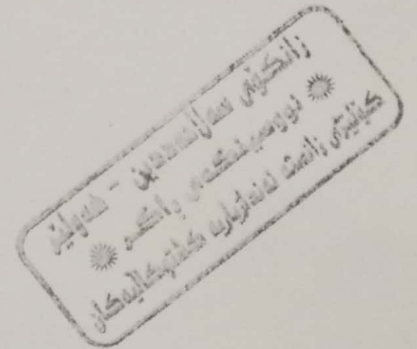 زانكۆی سەلاحەددین - هەولێر
نووسینگەی ڕاگر
كۆلێژی زانستە ئەندازیاریە كشتوكاڵیەكان